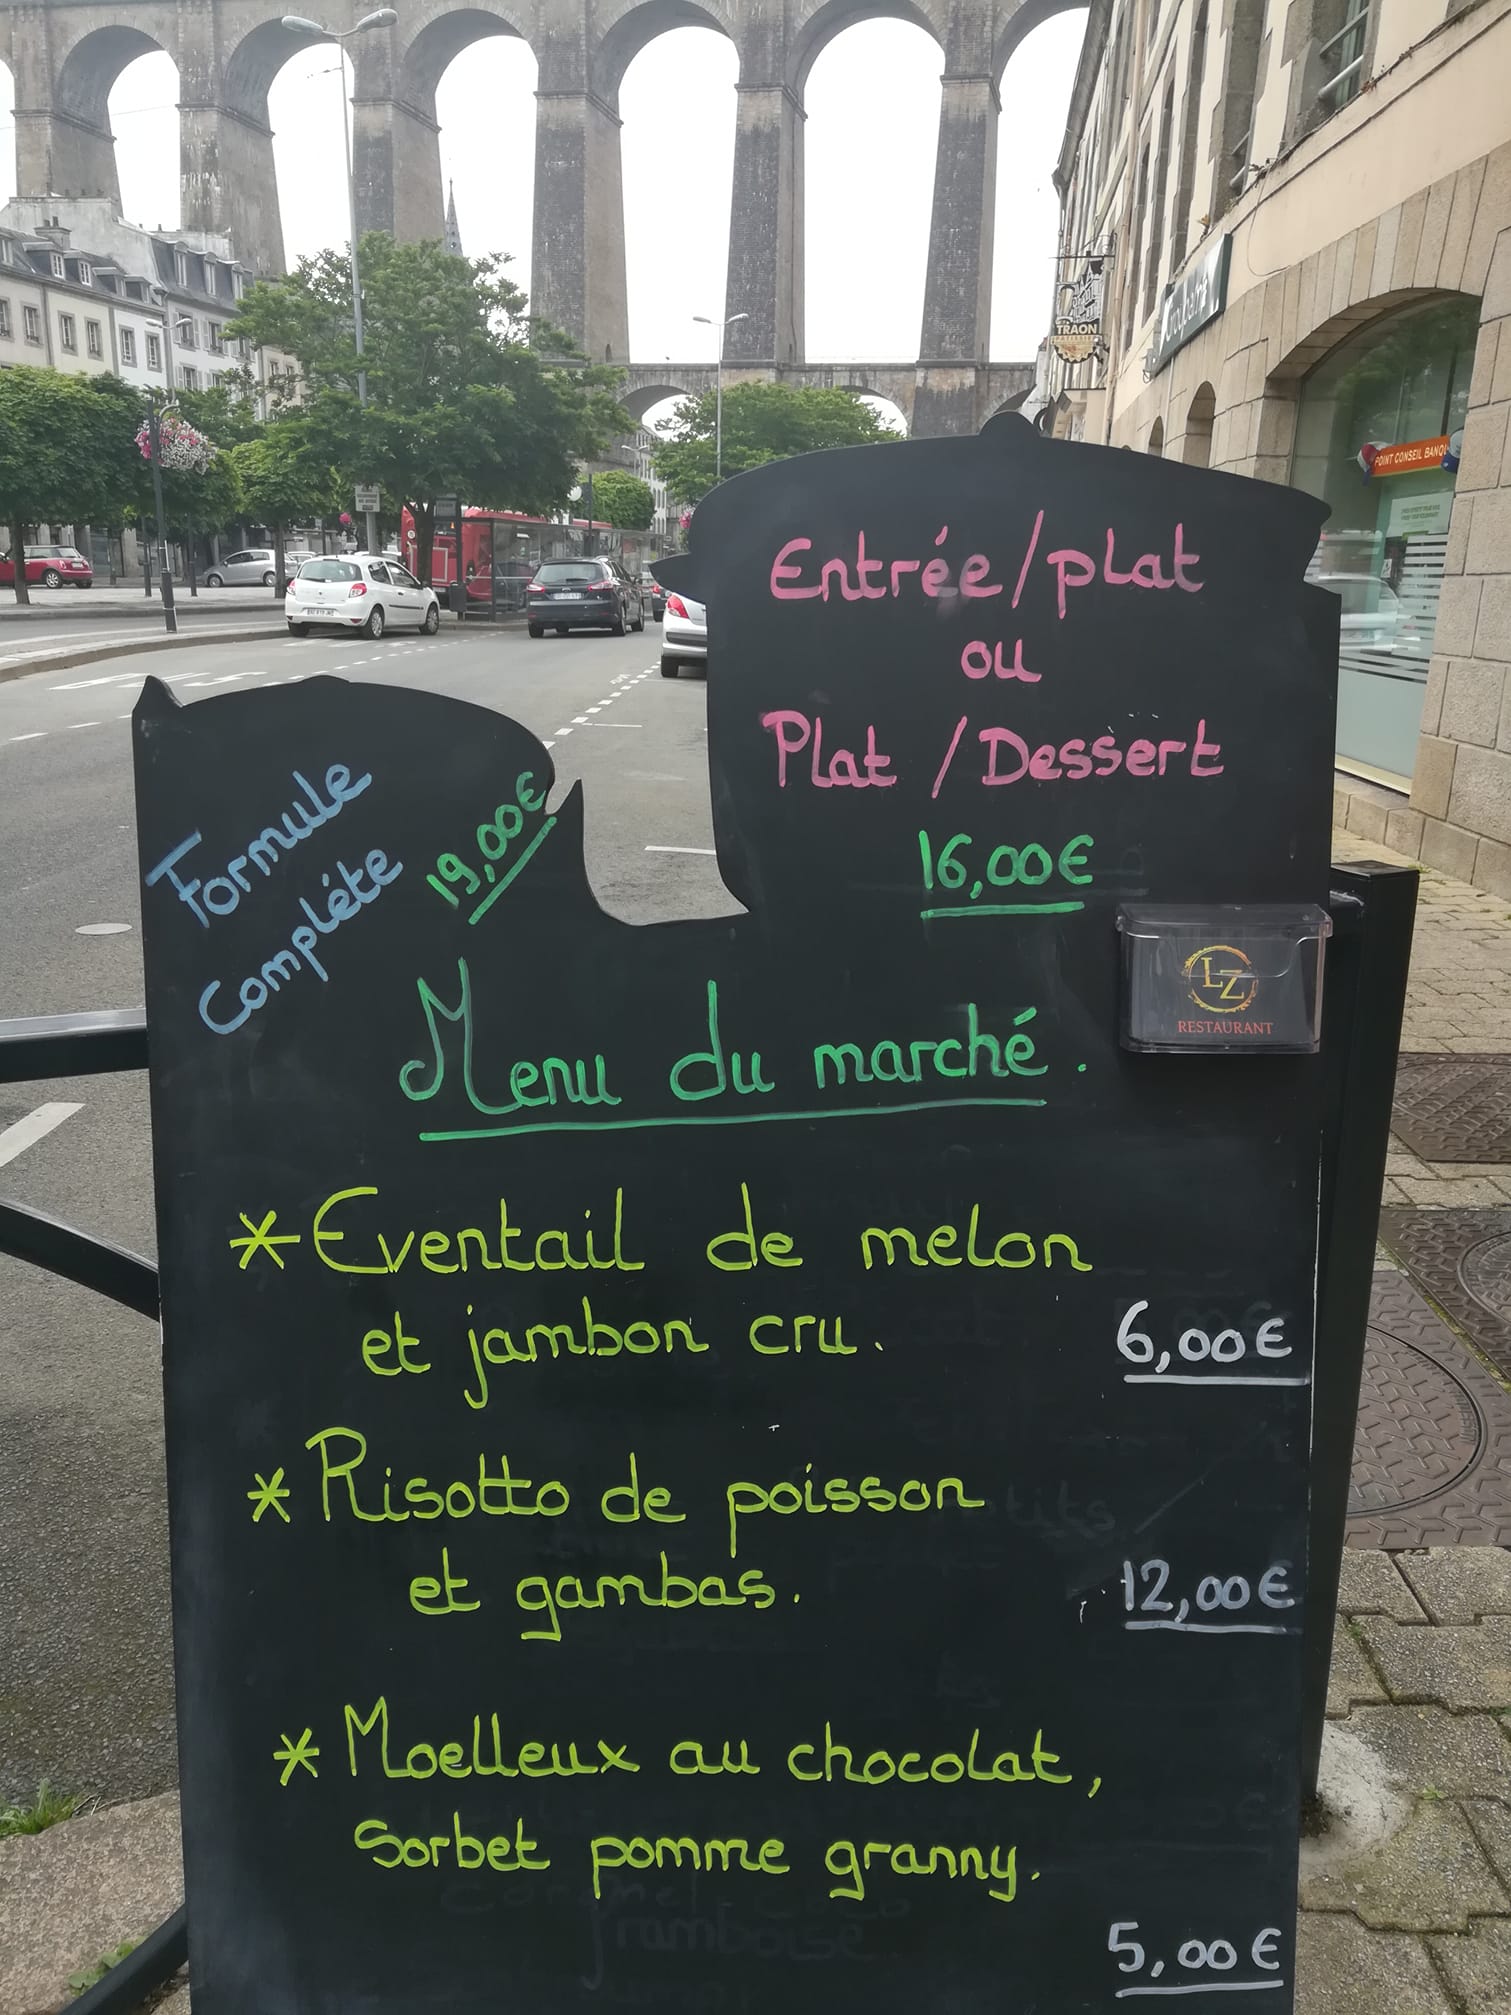 TRAON
POINT CONSEIL BANQU
Entrée/plat
ou
Plat / Dessert
16,00€
Formule
Compléte
19,00€
LZ
RESTAURANT
Menu du marché.
* Eventail de melon
et jambon cru.
6,00€
* Risotto de poisson
et gambas.
12,00€
* Moelleux au chocolat,
Sorbet pomme granny.
5,00€